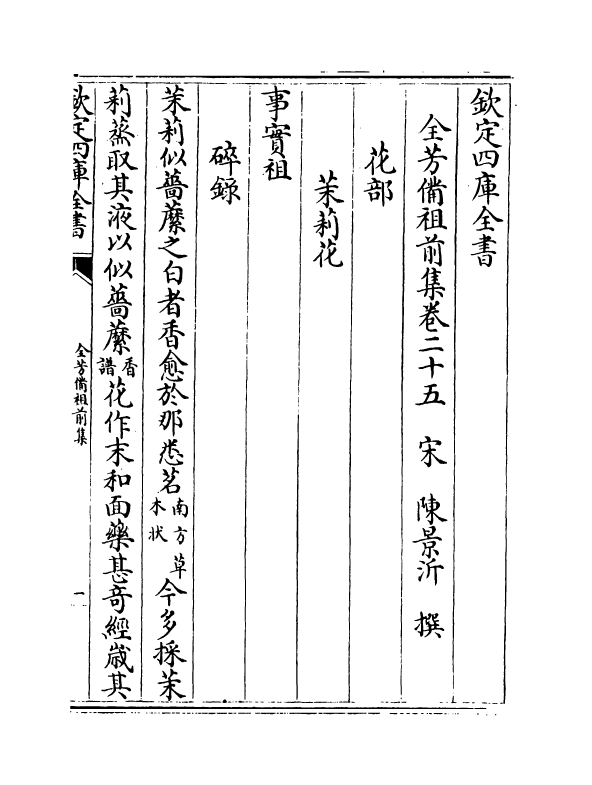 欽定四庫全書
全芳備祖前集卷二十五　宋　陳景沂　撰
花部
茉莉花
事實祖
碎録
茉莉似薔蘼之白者香愈於那悉茗南方草木状今多採茉
莉蒸取其液以似薔蘼香譜花作末和面藥甚竒經歳其
欽定四庫全書
全芳備祖前集
一